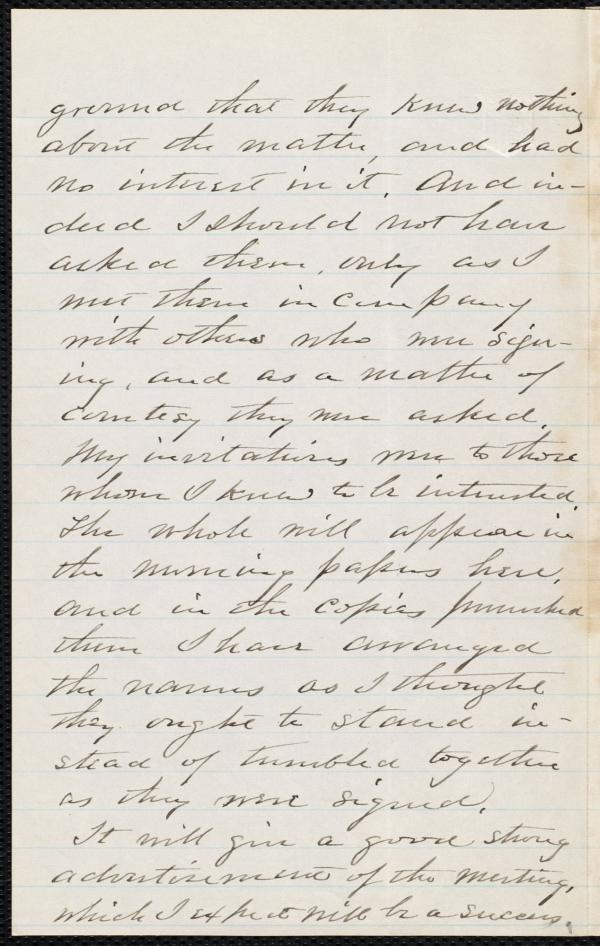 ground that they knew nothing
about the matter, and had
no interest in it. And in-
deed I should not have
asked them, only as I
met them in company
with others who were sign-
ing, and as a matter of
courtesy they were asked.
My invitations were to those
whom I knew to be interested.
The whole will appear in
the morning papers here,
and in the copies furnished
them I have arranged
the names as I thought
they ought to stand in-
stead of tumbled together
as they were signed.
It will give a good strong
advertisement of the meeting,
which I expect will be a success.